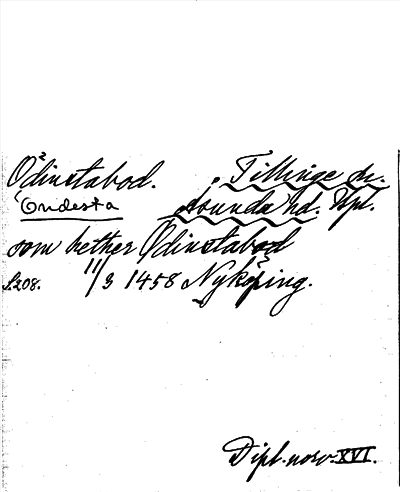 Ödinstabod. Tillinge sn.
Ondesta Åsunda hd. Upl.
som hether Ödinstabod
s. 208. 11/3 1458 Nyköping.
Dipl. norv. XVI.